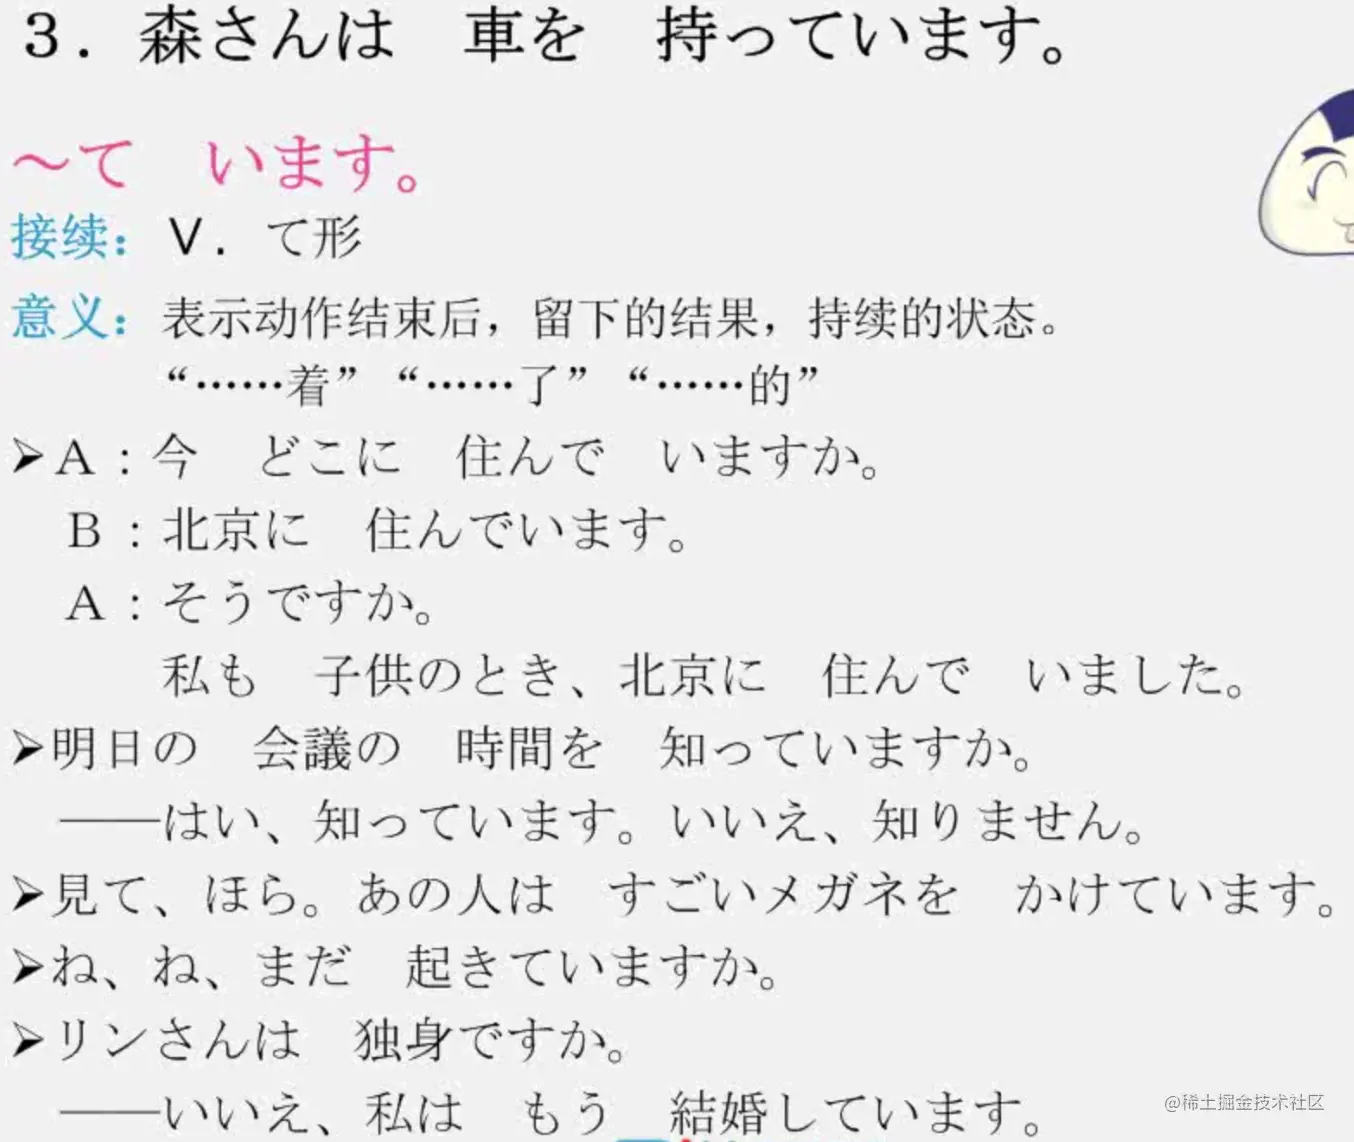 3．森さんは　車を　持っています。
～て　います。
接续：V．て形
意义：表示动作结束后，留下的结果，持续的状态。
“……着”“……了”“……的”
➢A：今　どこに　住んで　いますか。
B：北京に　住んでいます。
A：そうですか。
私も　子供のとき、北京に　住んで　いました。
➢明日の　会議の　時間を　知っていますか。
——はい、知っています。いいえ、知りません。
➢見て、ほら。あの人は　すごいメガネを　かけています。
➢ね、ね、まだ　起きていますか。
➢リンさんは　独身ですか。
——いいえ、私は　もう　結婚しています。
@稀土掘金技术社区